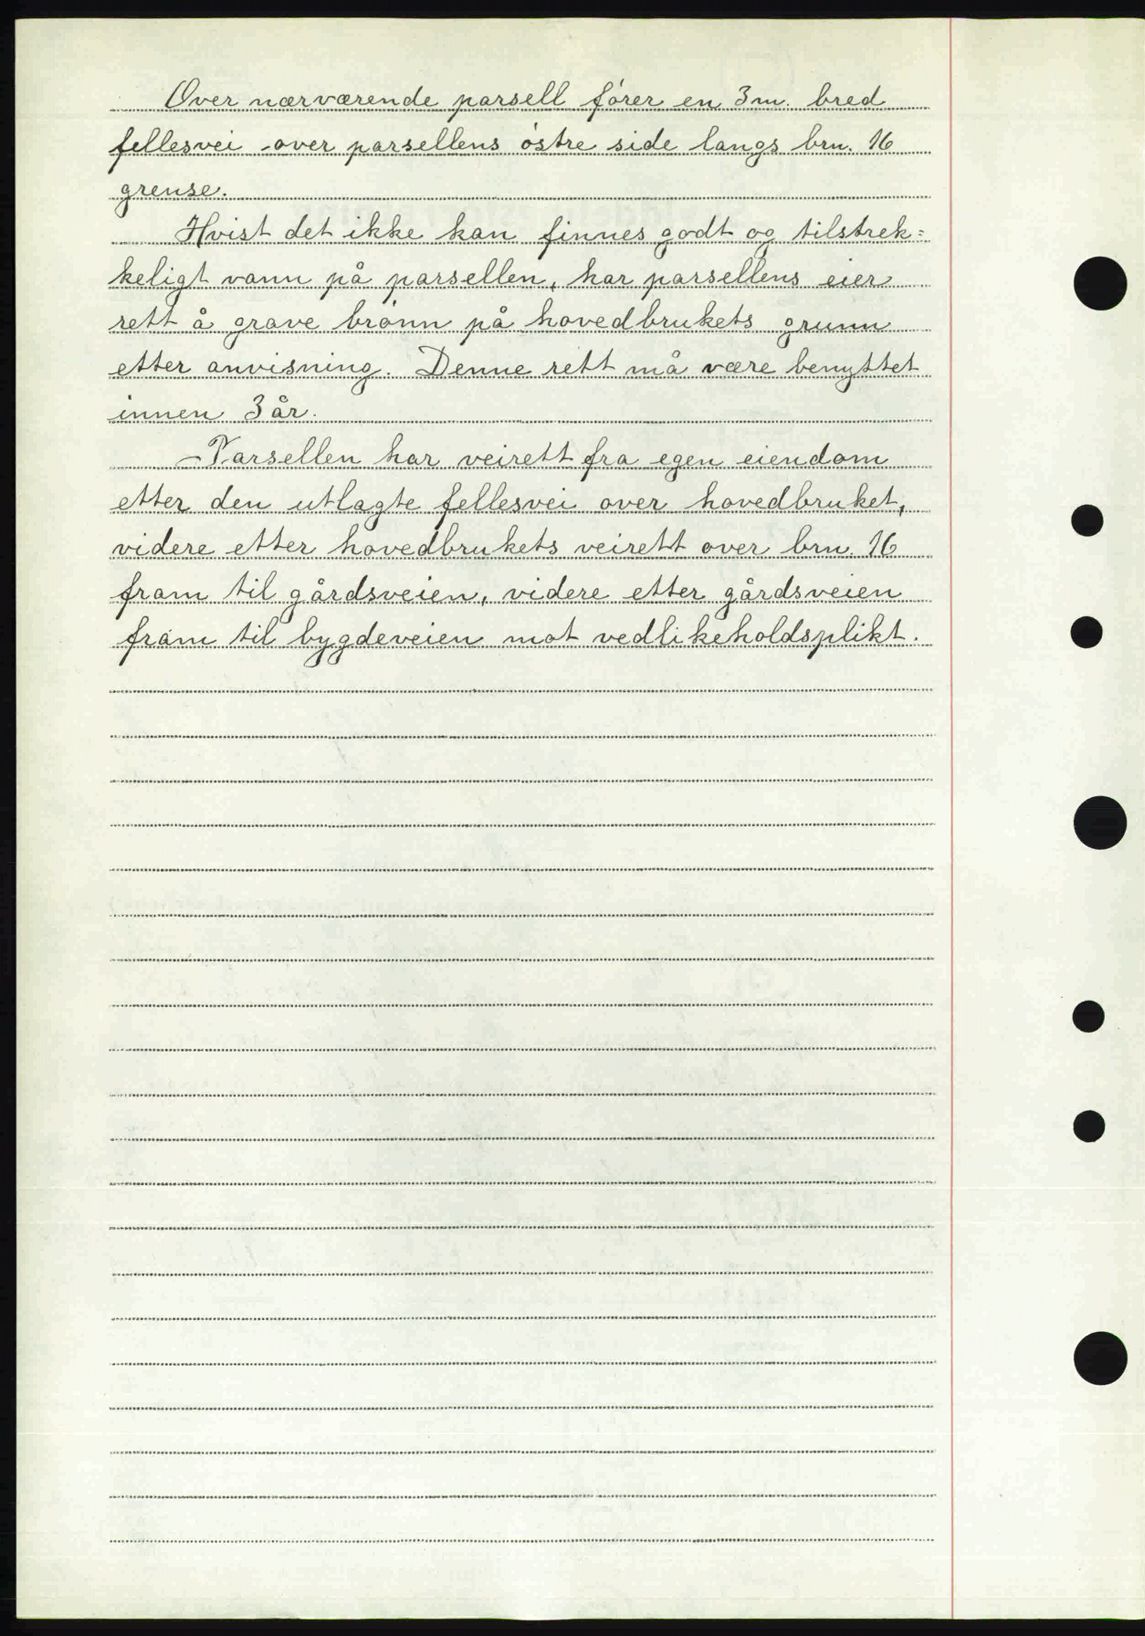 Over nærværende parsell fører en 3 m. bred
fellesvei over parsellens østre side langs brn. 16
grense.
Hvist det ikke kan finnes godt og tilstrek=
keligt vann på parsellen, har parsellens eier
rett å grave brønn på hovedbrukets grunn
etter anvisning. Denne rett må være benyttet
innen 3 år.
Parsellen har veirett fra egen eiendom
etter den utlagte fellesvei over hovedbruket,
videre etter hovedbrukets veirett over brn. 16
fram til gårdsveien, videre etter gårdsveien
fram til bygdeveien mot vedlikeholdsplikt.